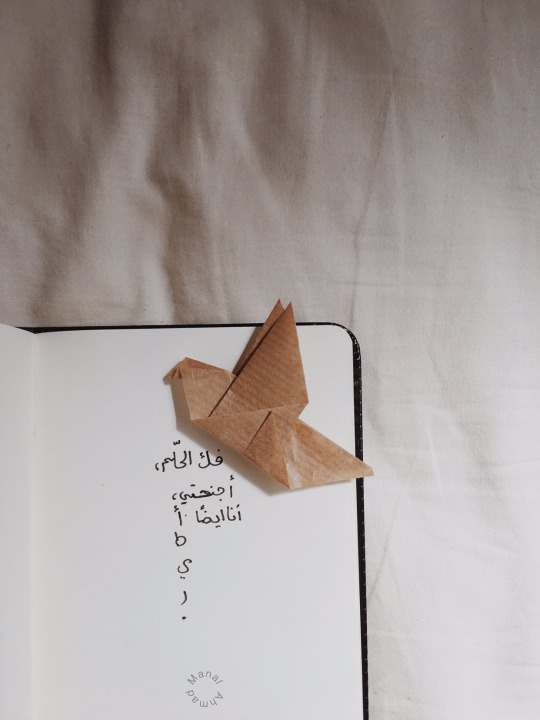 فكّ الحلم،
أجنحتي،
أنا ايضًا أ
ط
ي
ر
.
Manal Ahmad